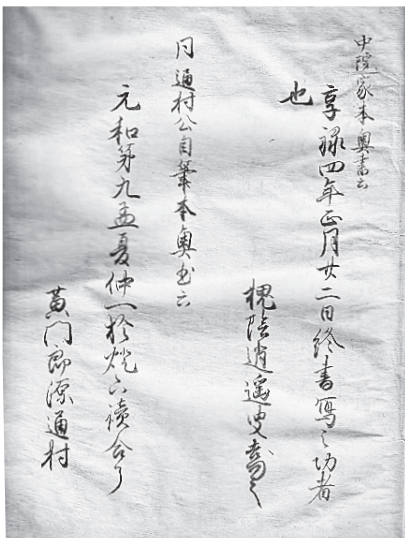 中院家本奥書云
享禄四年正月廿二日終書写之功者
也
槐陰逍遥叟
同通村公自筆本奥書云
元和第九孟夏仲一於灯下読合了
黄門郎源通村